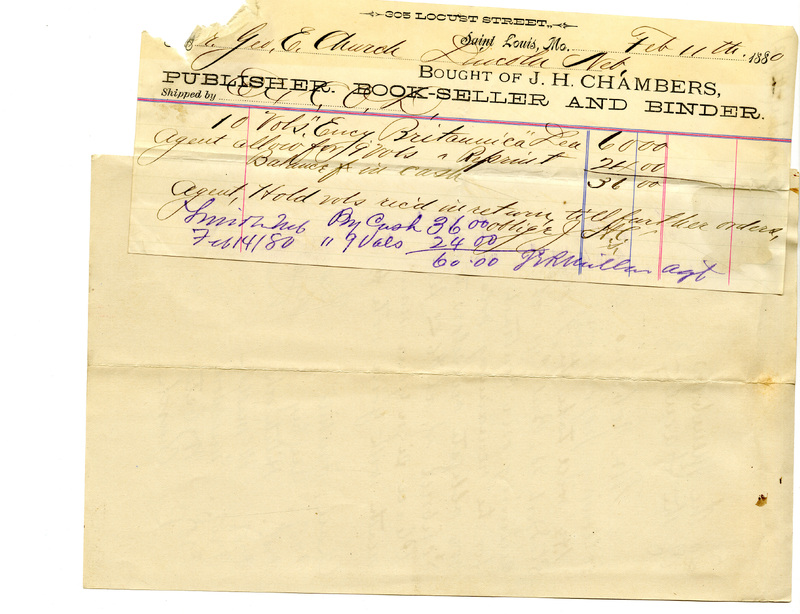 305 LOCUST STREET,
Saint Louis, Mo. Feb 11th. 1880
Geo, E. Church Lincoln Neb,
BOUGHT OF J. H. CHAMBERS,
PUBLISHER. BOOK-SELLER AND BINDER.
Shipped by
10 Vols "Ency Britannica" Lea 60 00
Agent allow for 9 Vols " Reprint 24 00
Balance in cash 36 00
Agent, Hold vols rec'd in return till further orders,
oblige J H C
Lincoln Neb By Cash 36 00
Feb 14/80 " 9 Vols 24 00
60.00 Miller agt